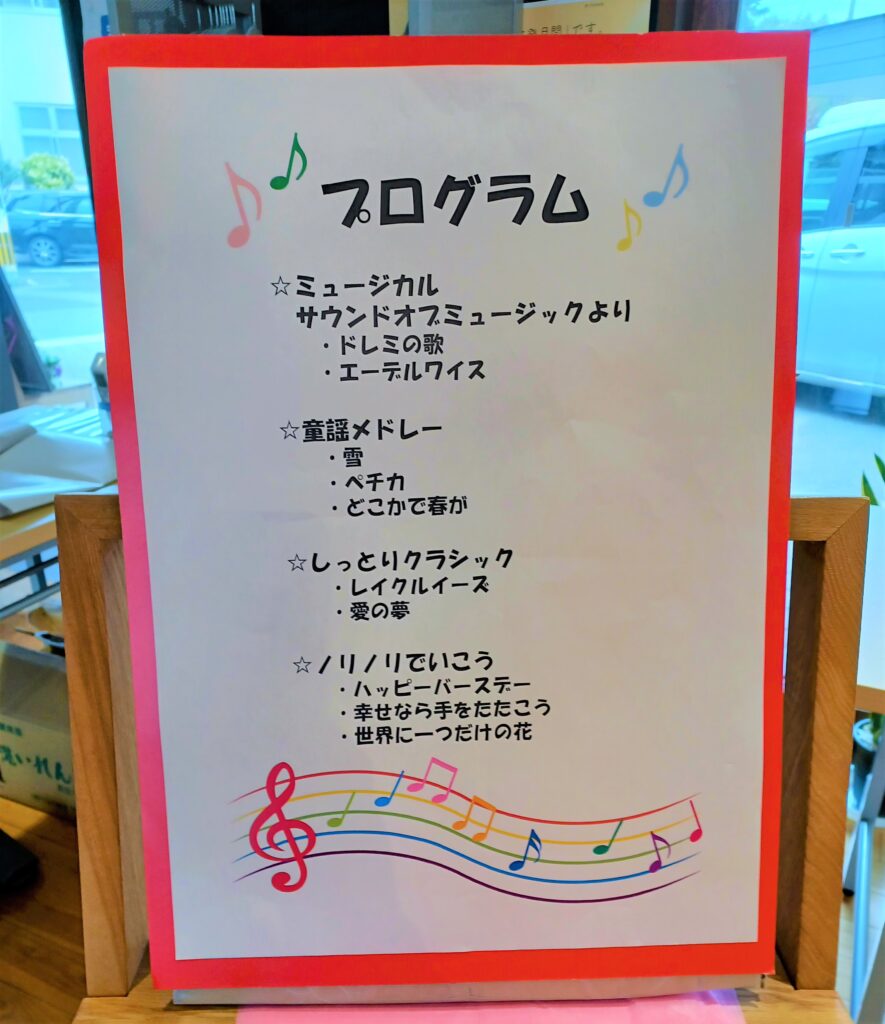 プログラム
☆ミュージカル
サウンドオブミュージックより
・ドレミの歌
・エーデルワイス
☆童謡メドレー
・雪
・ペチカ
・どこかで春が
☆しっとりクラシック
・レイクルイーズ
・愛の夢
☆ノリノリでいこう
・ハッピーバースデー
・幸せなら手をたたこう
・世界に一つだけの花